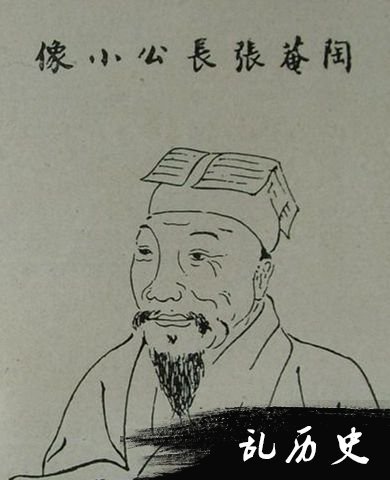 陶菴張長公小像
乱历史